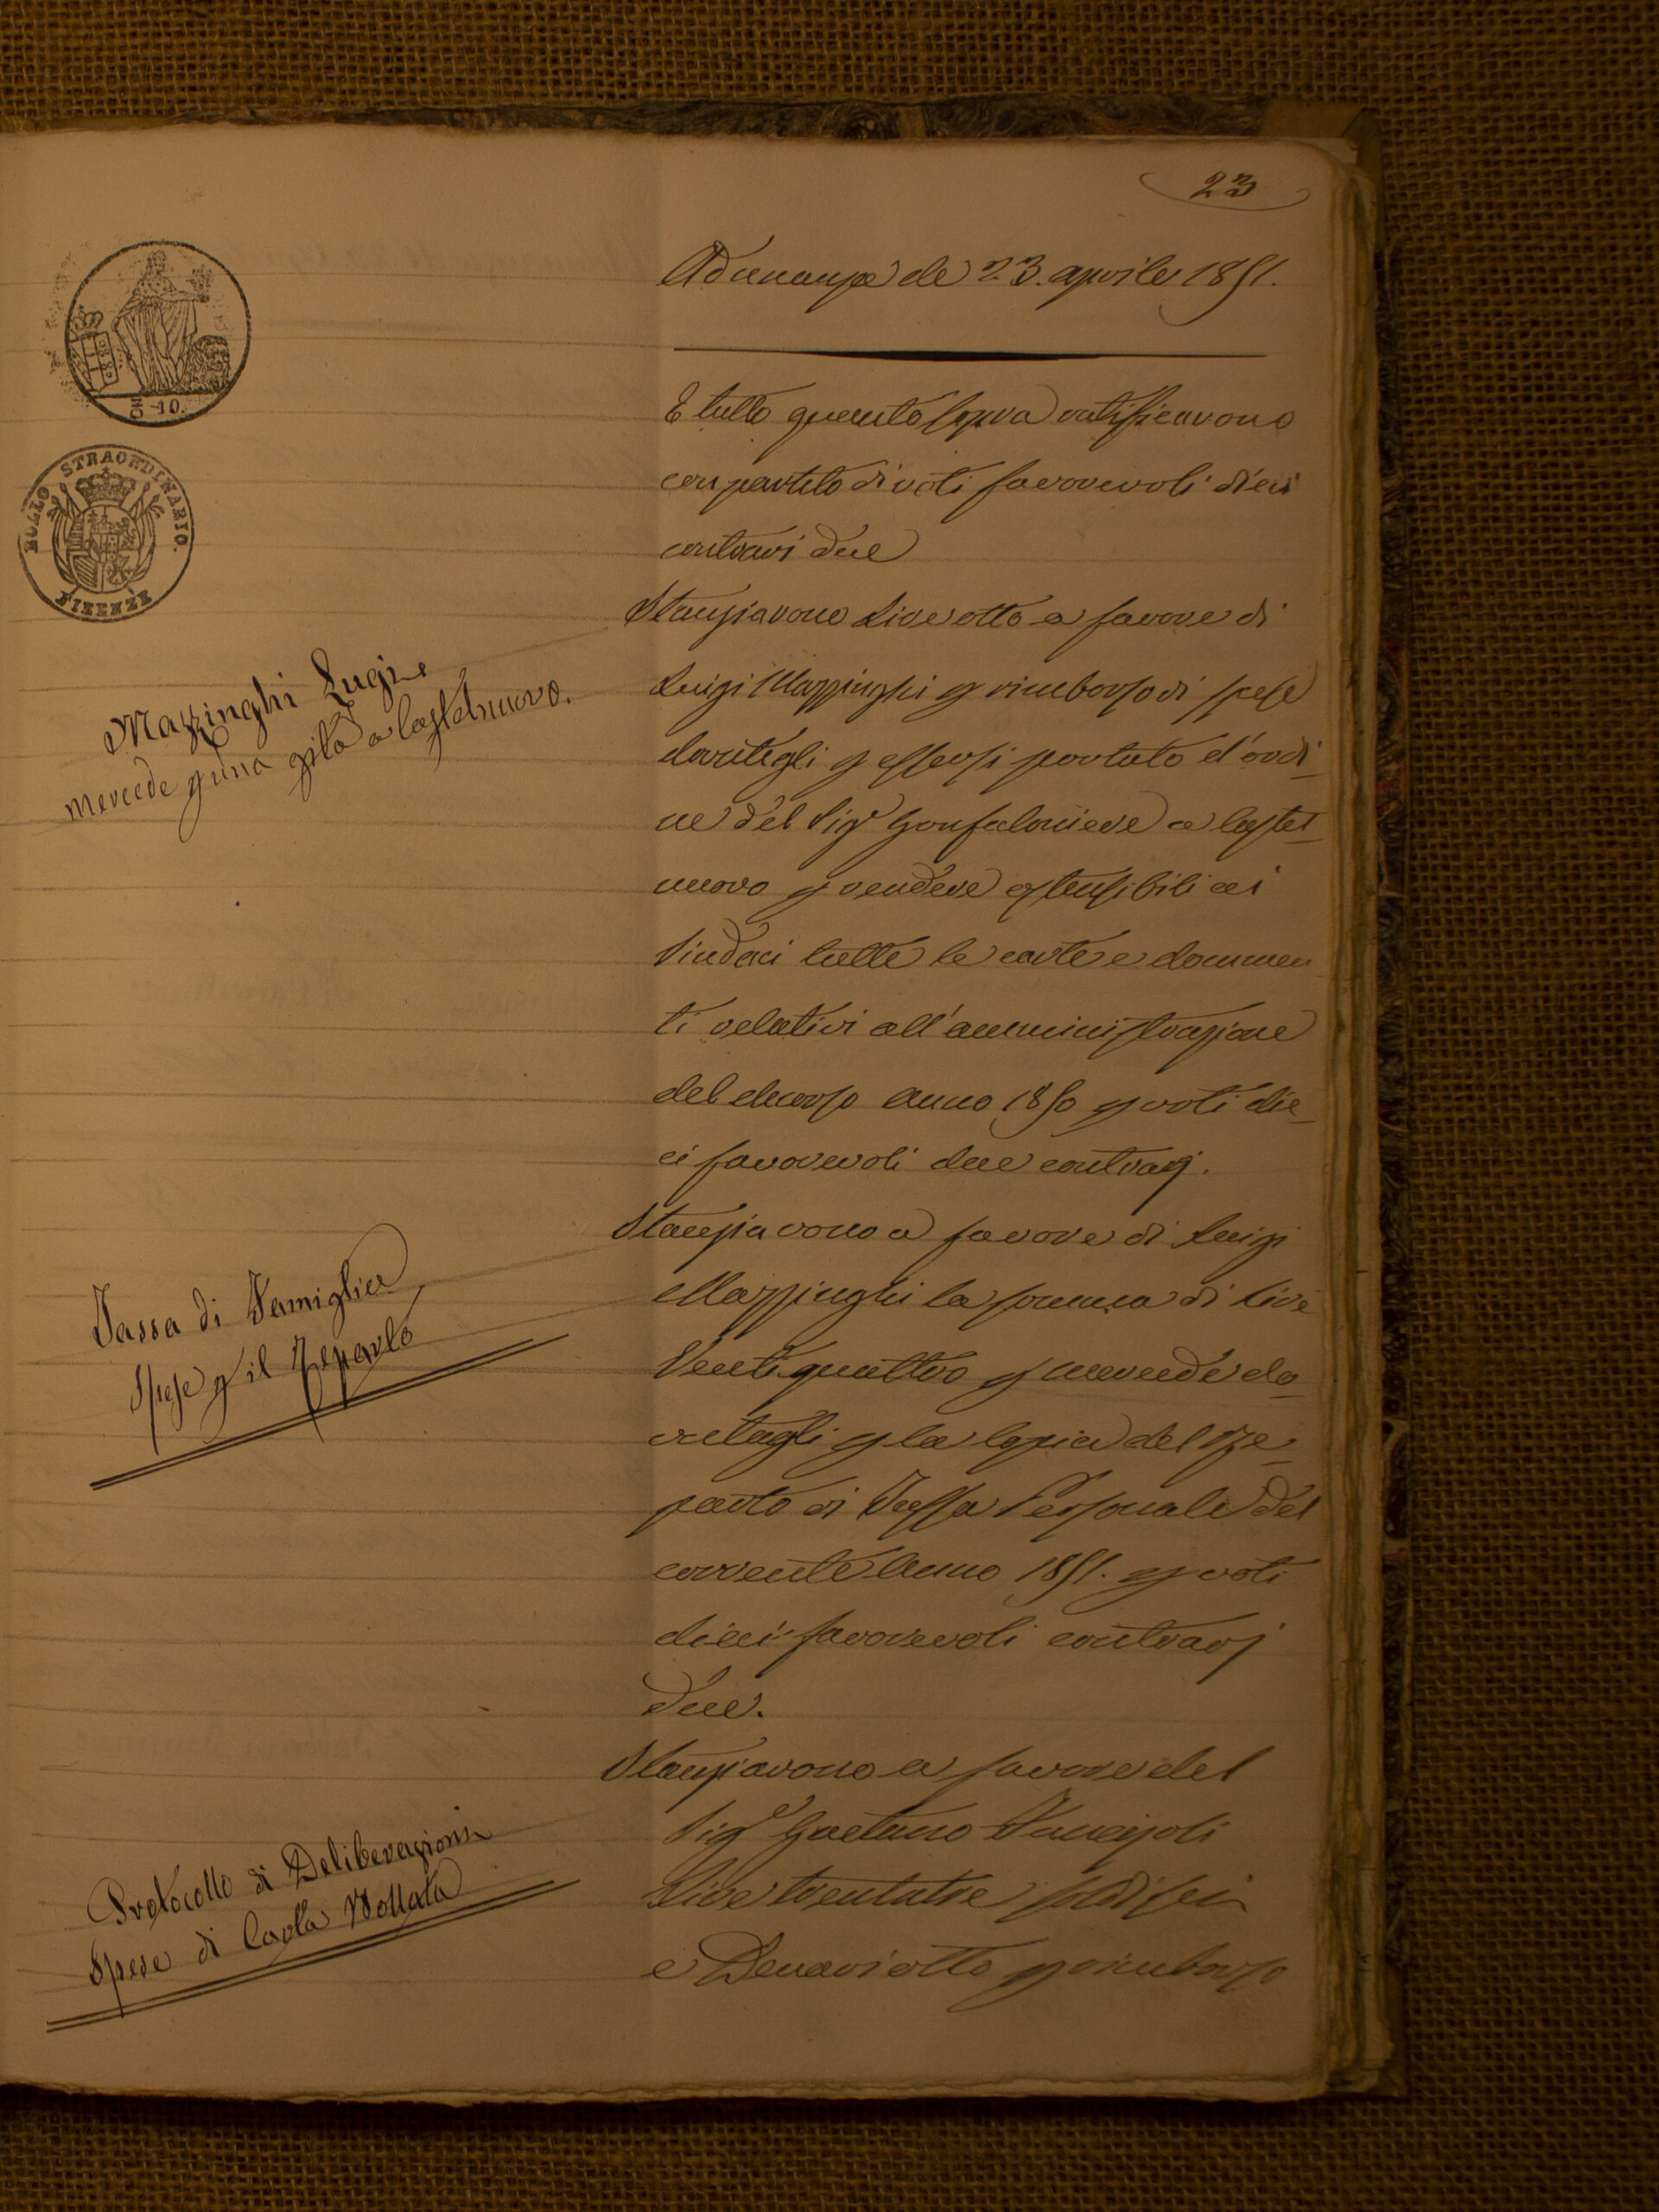 23
Adunanza de 23. aprile 1851.
10.
BOLLO STRAORDINARIO.
FIRENZE
E tutto quanto sopra ratificarono
con partito di voti favorevoli dieci
contrari due
Mazzinghi Luigi
mercede p una gita a Castelnuovo.
Stanziarono Lire otto a favore di
Luigi Mazzinghi p rimborso di spese
dovutegli p essersi portato d'ordi_
ne del Sigr Gonfaloniere a Castel_
nuovo p rendere ostensibili ai
Sindaci tutte le carte e documen
ti relativi all'amministrazione
del decorso anno 1850 p voti die_
ci favorevoli due contrarj.
Tassa di Famiglia
Spese p il Reparto
Stanziarono a favore di Luigi
Mazzinghi la somma di Lire
Ventiquattro p mercede do_
vutagli p la Copia del Re_
parto di Tassa Personale del
corrente Anno 1851. p voti
dieci favorevoli contrarj
due.
Protocollo di Deliberazioni
Spese di Carta Bollata
Stanziarono a favore del
Sigr Gaetano
Lire trentatre soldi sei
e Denari otto p rimborso